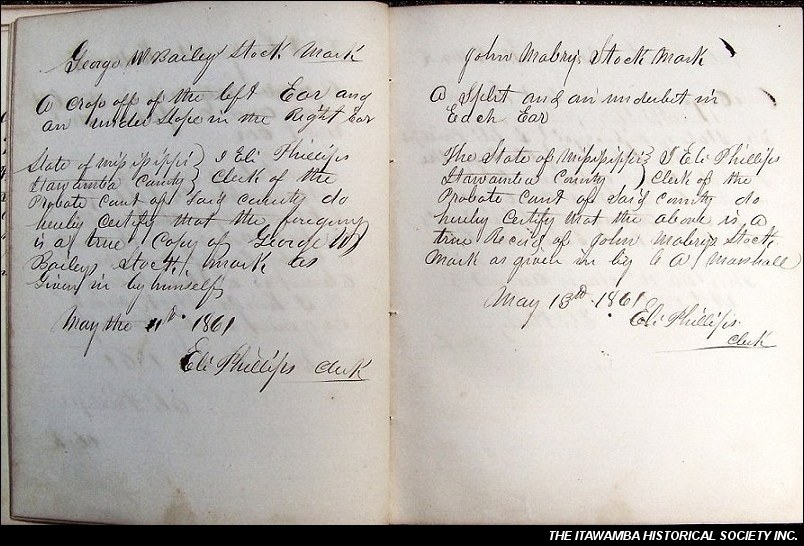 George W Bailey Stock Mark
A crop off of the left Ear and
an under Slope in the Right Ear
State of Mississippi } I Eli Phillips
Itawamba County } Clerk of the
Probate Court of Said county do
hereby Certify that the foregoing
is a true Copy of George W
Baileys Stock mark as
Given in by himself
May the 11th 1861
Eli Phillips Clerk
John Mabrys Stock Mark
A Split and an underbet in
Each Ear
The State of Mississippi } I Eli Phillips
Itawamba County } Clerk of the
Probate Court of Said County do
hereby Certify that the above is a
true Record of John Mabrys Stock
Mark as given in by C A Marshall
May 13rd 1861
Eli Phillips
Clerk
THE ITAWAMBA HISTORICAL SOCIETY INC.